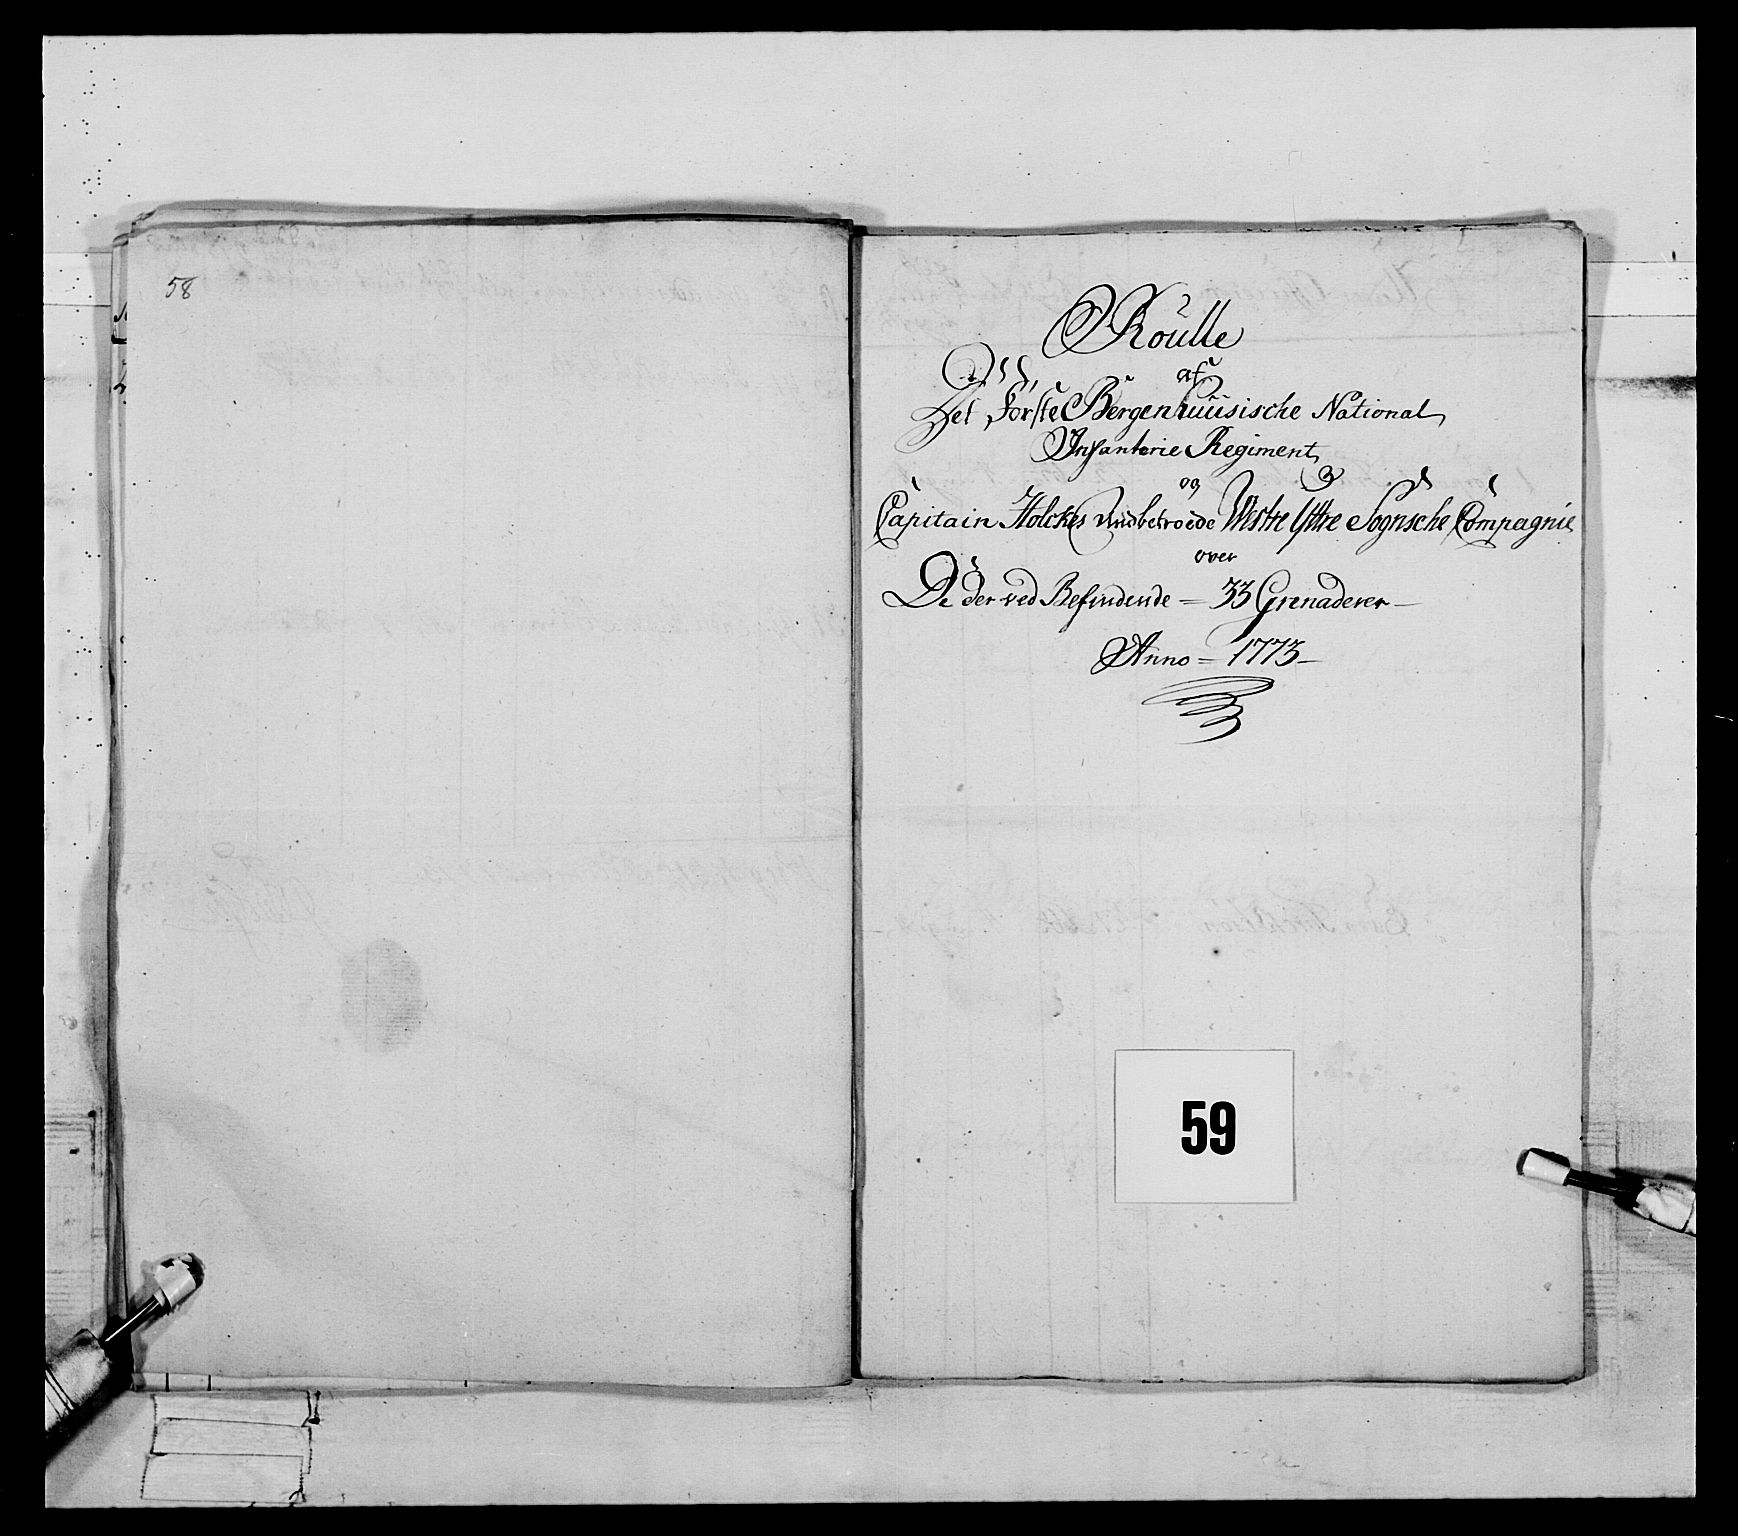 58
Roulle
af
Det Förste Bergenhuusische National
Infanterie Regiment
og
Capitain Holckes Andbetroede Vestre Yttre Sognsche Compagnie
over
De der ved Befindende = 33 Grenaderer
Anno = 1773
59